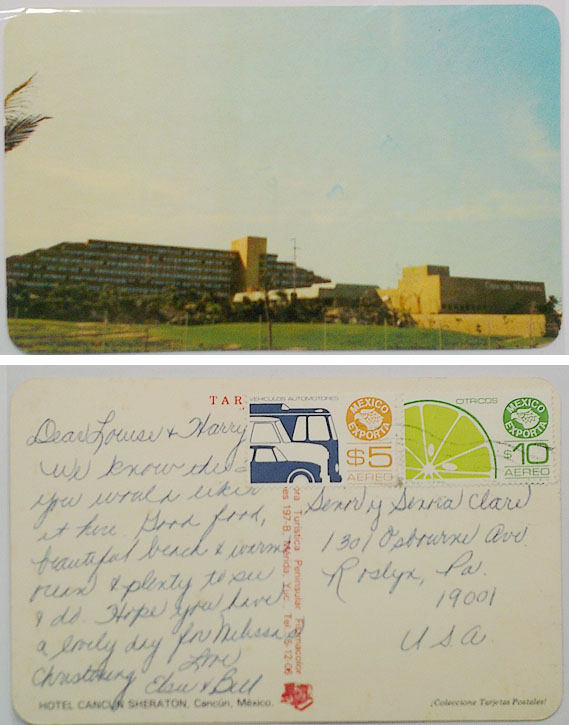 Cancun Sheraton
TAR
VEHICULOS AUTOMOTORES
MEXICO EXPORTA
$5
AEREO
CITRICOS
MEXICO EXPORTA
$10
AEREO
Dear Louise & Harry
We know
you would like
it here. Good food,
beautiful beach & warm
ocean & plenty to see
& do. Hope you have
a lovely day for Melissa's
Christening Love
Elsie & Bill
Senor y Senora Clare
1301 Osbourne Ave
Roslyn, Pa.
19001
USA
ora Turística Peninsular
es 197-B, Mérida, Yuc. Tel.
HOTEL CANCUN SHERATON, Cancún, México.
¡Coleccione Tarjetas Postales!